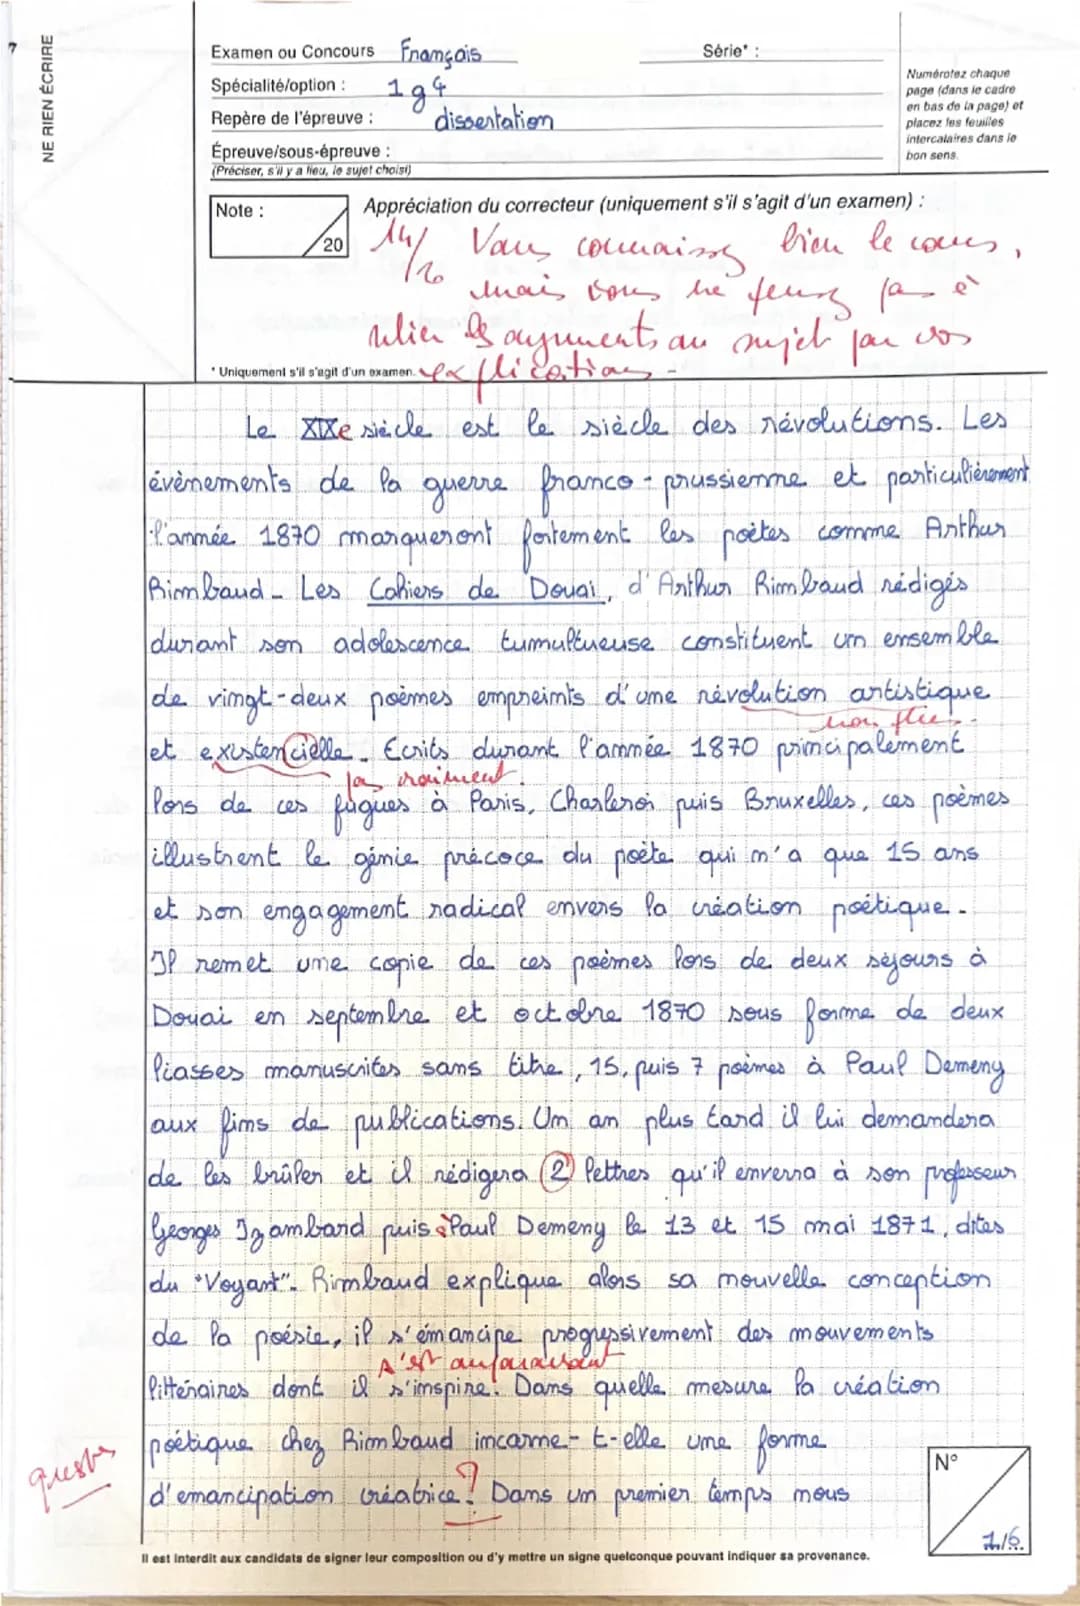 7
NE RIEN ÉCRIRE
Examen ou Concours Français Série* :
Spécialité/option : 1g4
Repère de l'épreuve : dissertation
Épreuve/sous-épreuve :
(Préciser, s'il y a lieu, le sujet choisi)
Numérotez chaque
page (dans le cadre
en bas de la page) et
placez les feuilles
intercalaires dans le
bon sens.
Note :
20
Appréciation du correcteur (uniquement s'il s'agit d'un examen) :
14/20 Vous connaissez bien le cours,
mais vous ne pensez pas à
relier les arguments au sujet par vos
explications -
* Uniquement s'il s'agit d'un examen.
Le XIXe siècle est le siècle des révolutions. Les
évènements de la guerre franco-prussienne et particulièrement
l'année 1870 marqueront fortement les poètes comme Arthur
Rimbaud. Les Cahiers de Douai, d'Arthur Rimbaud rédigés
durant son adolescence tumultueuse constituent un ensemble
de vingt-deux poèmes empreints d'une révolution artistique
non plus.
et existencielle. Ecrits durant l'année 1870 principalement
pas vraiment.
lors de ces fugues à Paris, Charleroi puis Bruxelles, ces poèmes
illustrent le génie précoce du poète qui n'a que 15 ans
et son engagement radical envers la création poétique.
Il remet une copie de ces poèmes lors de deux séjours à
Douai en septembre et octobre 1870 sous forme de deux
liasses manuscrites sans titre, 15, puis 7 poèmes à Paul Demeny
aux fins de publications. Un an plus tard il lui demandera
de les brûler et il rédigera 2 lettres qu'il enverra à son professeur
Georges Izambard puis Paul Demeny le 13 et 15 mai 1871, dites
du "Voyant". Rimbaud explique alors sa nouvelle conception
de la poésie, il s'émancipe progressivement des mouvements
s'est auparavant
littéraires dont il s'inspire. Dans quelle mesure la création
poétique chez Rimbaud incarne-t-elle une forme
d'emancipation créatrice ? Dans un premier temps nous
N°
1/6
Il est interdit aux candidats de signer leur composition ou d'y mettre un signe quelconque pouvant indiquer sa provenance.